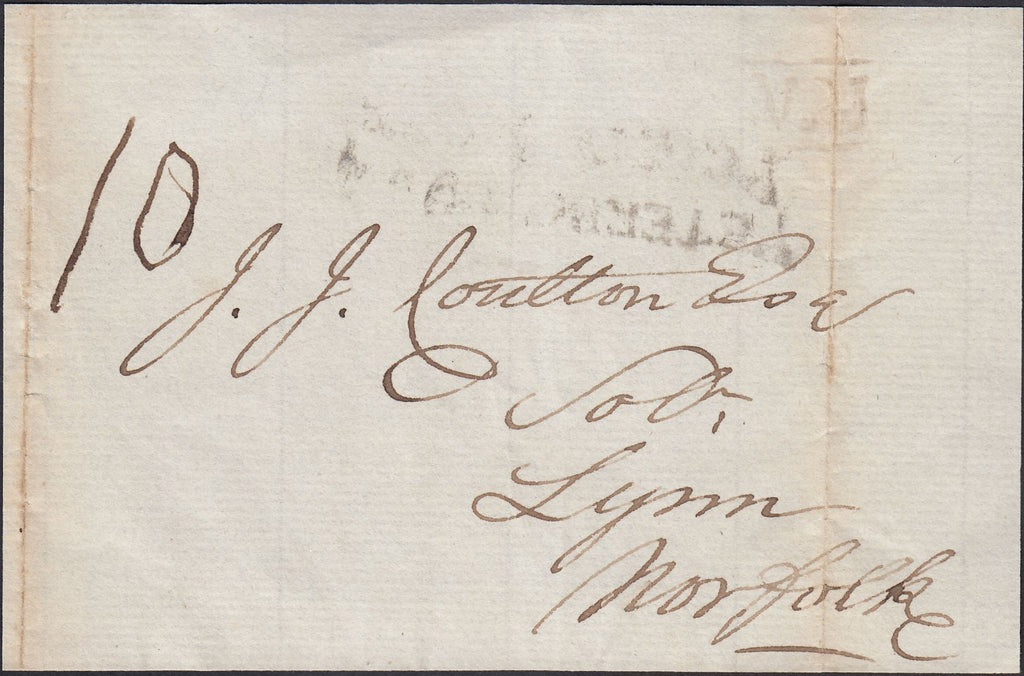 10
J. J. Coulton Esq
Solr.
Lynn
Norfolk